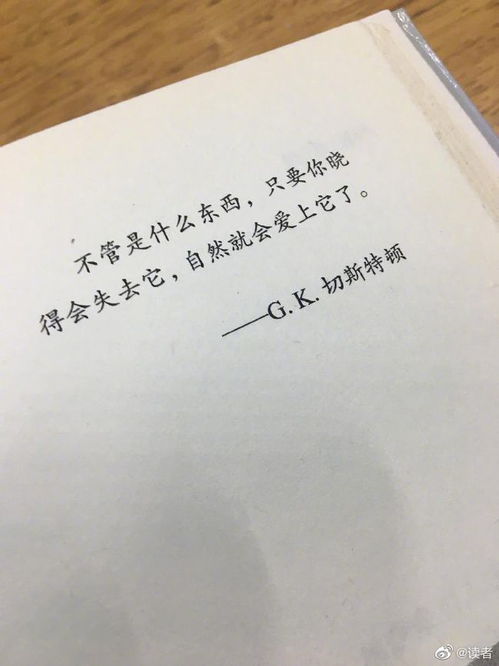 不管是什么东西，只要你晓
得会失去它，自然就会爱上它了。
——G.K.切斯特顿
@读者